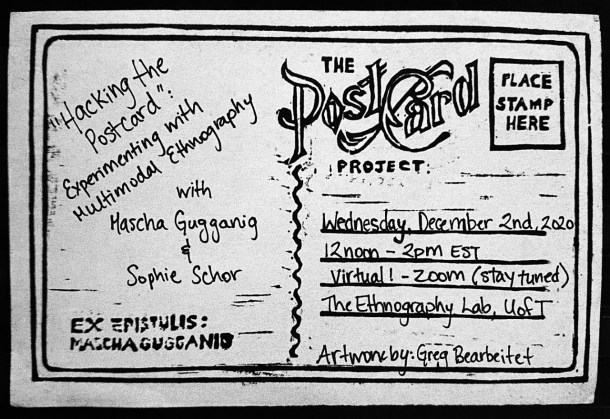 "Hacking the
Postcard":
Experimenting with
Multimodal Ethnography
with
Mascha Gugganig
&
Sophie Schor
EX EPISTULIS:
MASCHA GUGGANIG
THE
PostCard
PROJECT:
PLACE
STAMP
HERE
Wednesday, December 2nd, 2020
12noon - 2pm EST
Virtual! - ZOOM (stay tuned)
The Ethnography Lab, UofT
Artwork by: Greg Bearbeitet